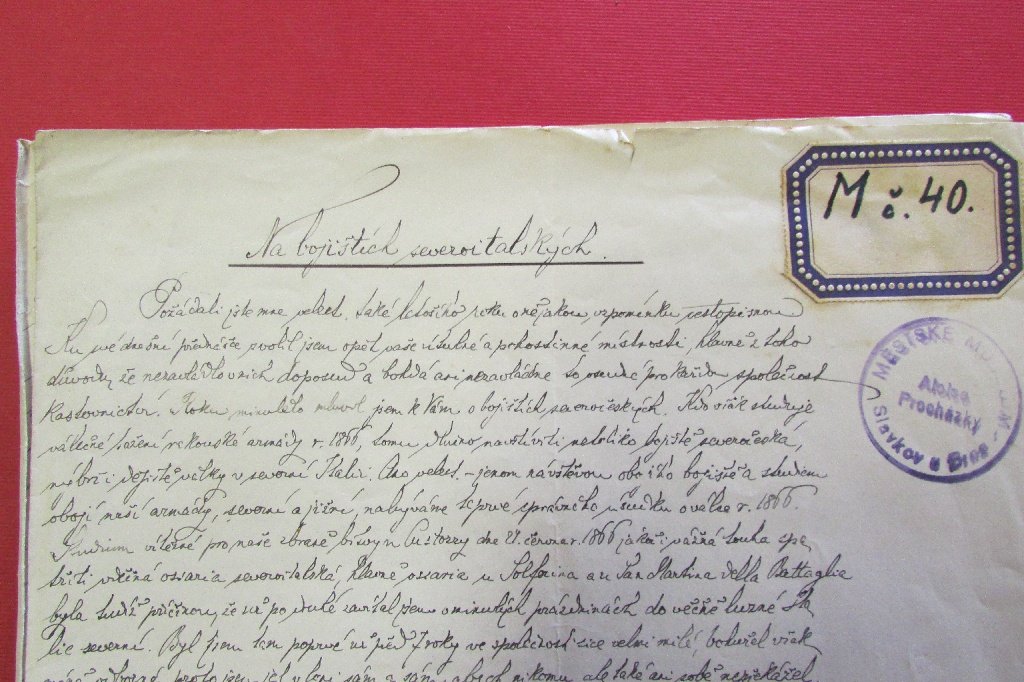 M č. 40.
Na bojištích severoitalských.
MĚSTSKÉ
Aloisa
Procházky
Slavkov u Brna
Požádali jste mne velect. také letošího roku o nějakou vzpomínku cestopisnou
Ku své dnešní přednášce zvolil jsem opět vaše útulné a pohostinné místnosti, hlavně z toho
důvodu, že nezavládlo v nich doposud a bohdá ani nezavládne to osudné pro každou společnost
kastovnictví. Roku minulého mluvil jsem k Vám o bojištích severočeských. Kdo však studuje
válečné tažení rakouské armády r. 1866, tomu dlužno navštíviti nedoliko bojiště severočeská,
nébrž i dějiště války v severní Italii. Ano velect. - jenom návštěvou obojího bojiště a studiem
obojí naší armády, severní a jižní, nabýváme teprvé správného úsudku o válce r. 1866.
Studium vítězné pro naše zbraně bitvy u Custozzy dne 24. června r. 1866 jakož i vážná touha spa-
třiti vděčná ossaria severoitalská, hlavně ossaria u Solferina a u San Martina della Battaglia
byla tudíž příčinou, že už po druhé zavítal jsem o minulých prázdninách do věčně luzné Ita-
lie severní. Byl jsem tam poprvé už před 7 roky ve společnosti sice velmi milé, bohužel však
proto jsem jel vloni sám a sám, abych nikomu, ale také ani sobě nepřekážel